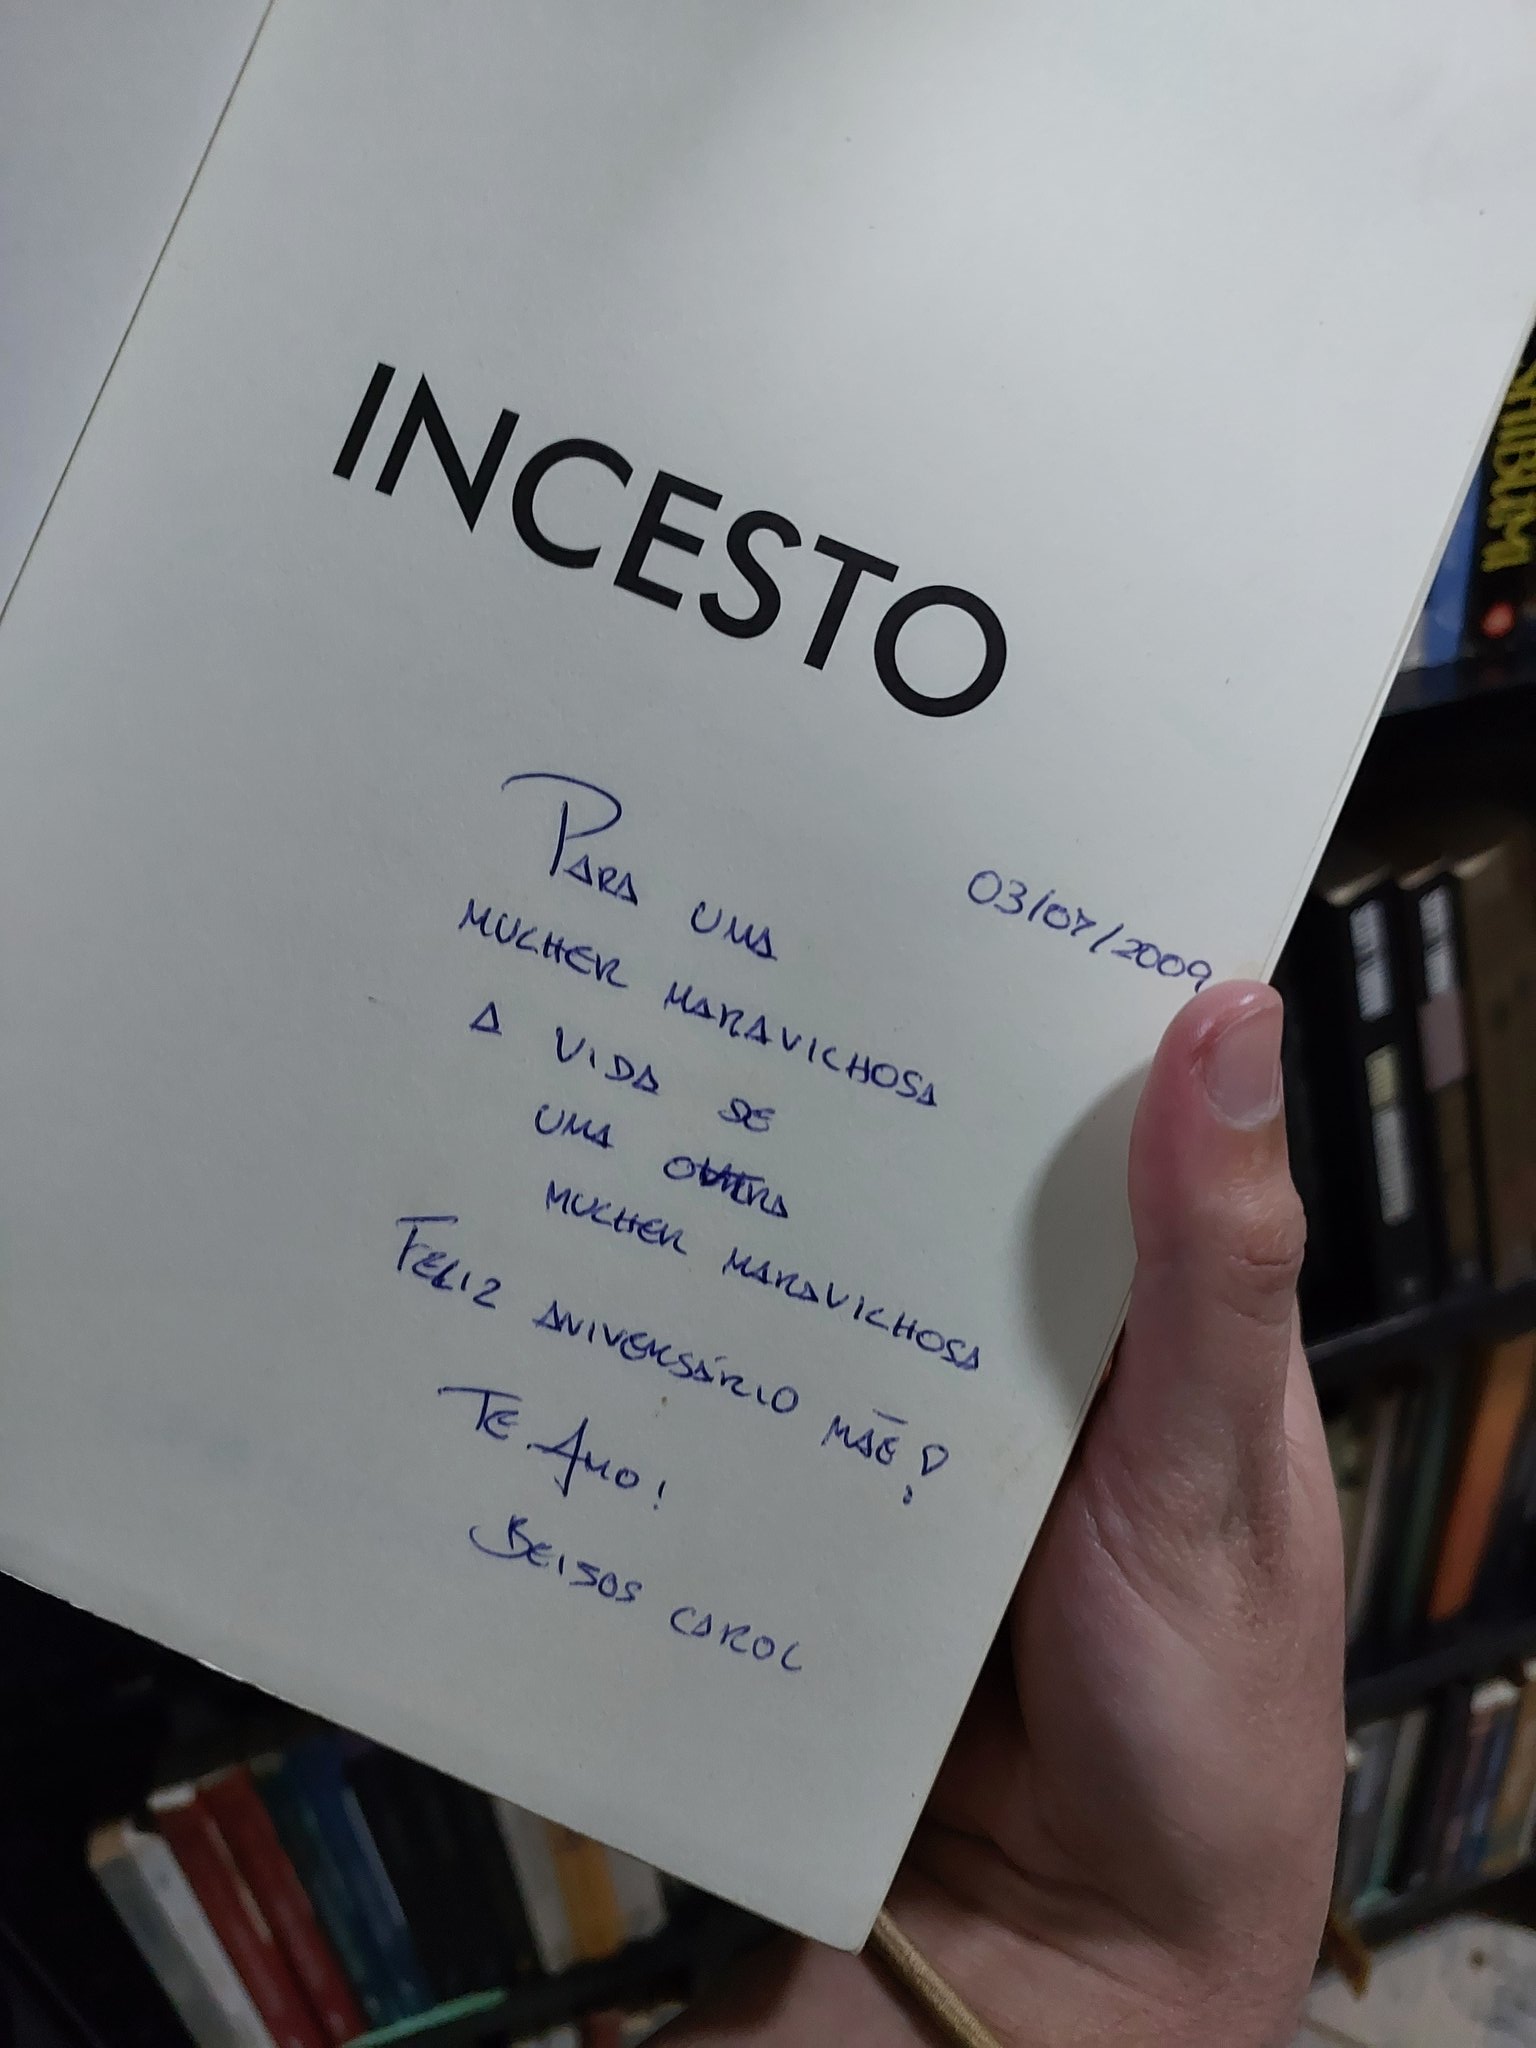 INCESTO
03/07/2009
PARA UMA
MULHER MARAVILHOSA
A VIDA DE
UMA OUTRA
MULHER MARAVILHOSA
FELIZ ANIVERSÁRIO MÃE!
TE AMO!
BEIJOS CAROL